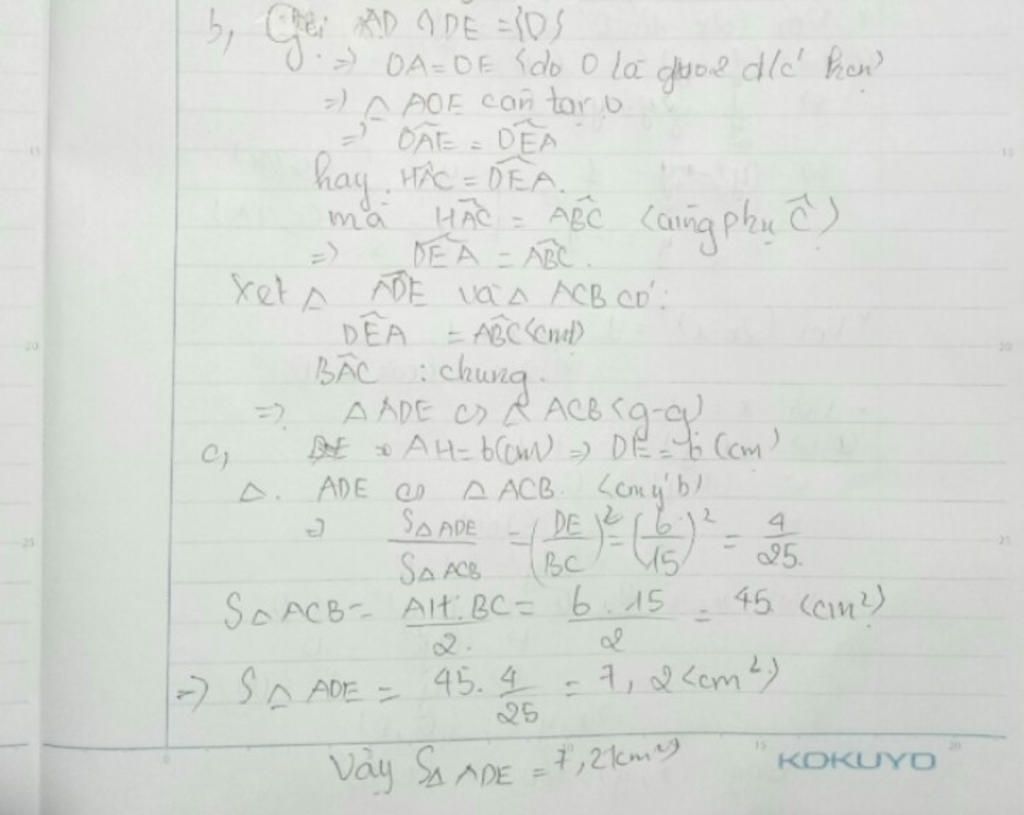 b, Gọi AD ∩ DE = {O}
=> OA = OE (do O là đ/c hcn)
=> △ AOE cân tại O
=> OAE = OEA
hay HAC = DEA.
mà HAC = ABC (cùng phụ C)
=> DEA = ABC.
Xét △ ADE và △ ACB có:
DEA = ABC (cmt)
BAC : chung.
=> △ ADE ∽ △ ACB (g-g)
c, AH = 6 (cm) => DE = 6 (cm)
△. ADE ∽ △ ACB. (cm ý b)
=> S△ ADE / S△ ACB = (DE / BC)² = (6 / 15)² = 4 / 25.
S△ ACB = AH. BC / 2. = 6 . 15 / 2 = 45 (cm²)
=> S△ ADE = 45. 4 / 25 = 7,2 (cm²)
Vậy S△ ADE = 7,2 (cm²)
KOKUYO